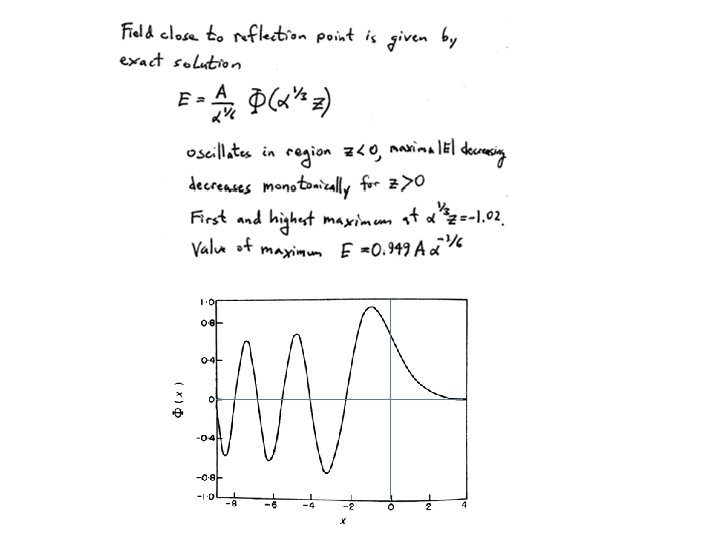 Field close to reflection point is given by
exact solution
E = A/α^1/6 Φ(α^1/3 z)
oscillates in region z<0, maxima |E| decreasing
decreases monotonically for z>0
First and highest maximum at α^1/3 z = -1.02.
Value of maximum E = 0.949 A α^-1/6
1.0
0.8
0.4
0
-0.4
-0.8
-1.0
Φ(x)
-8 -6 -4 -2 0 2 4
x